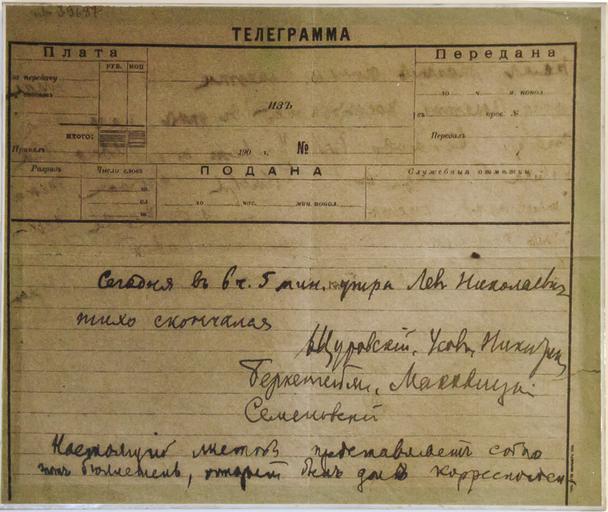 ТЕЛЕГРАММА
Плата
Передана
РУБ. КОП.
за передачу
ИТОГО:
Принялъ
ИЗЪ
190 г. №
го ч. м. попол.
№
Передалъ
Разрядъ
Число словъ
ПОДАНА
го час. мин. попол.
Служебныя отмѣтки
Сегодня въ 6 ч. 5 мин. утра Левъ Николаевич
тихо скончался
Щуровскій, Усовъ, Никитин
Беркенгеймъ, Маковицкій
Семеновскій
Настоящій листокъ представляетъ собою
тотъ бюллетень, который былъ данъ корреспонден